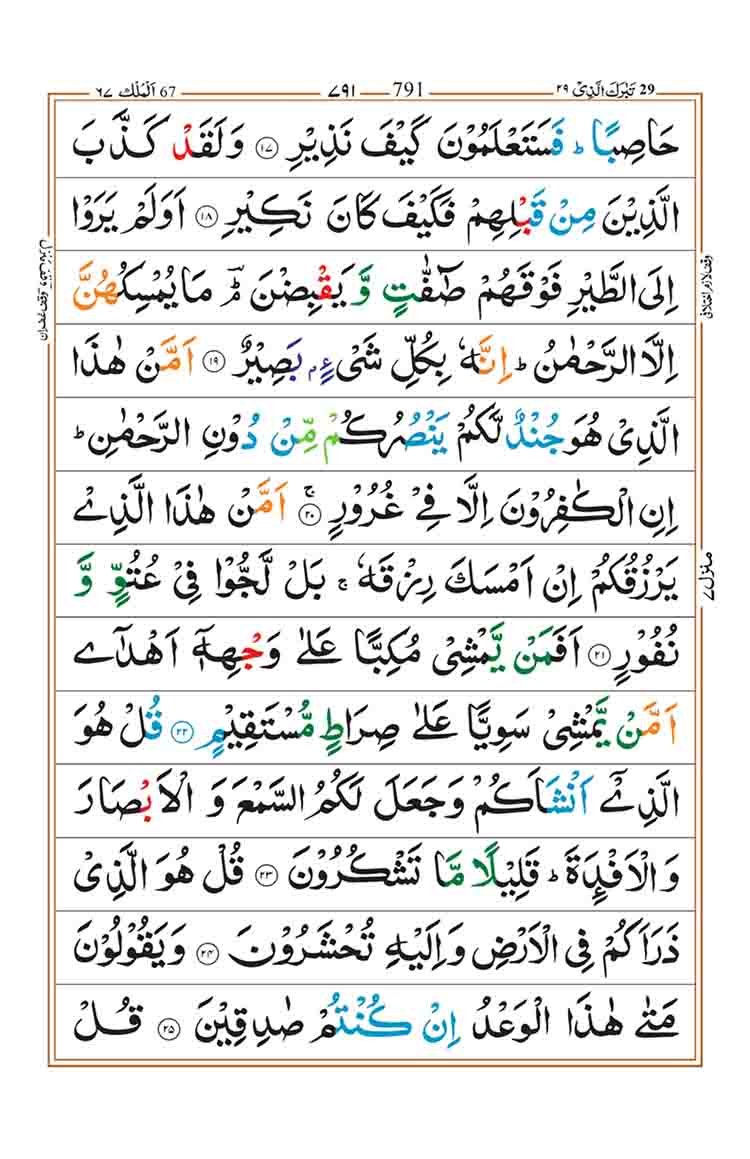 29 تَبٰرَكَ الَّذِىْ ٢٩ 791 ٧٩١ 67 اَلْمُلْك ٦٧
حَاصِبًا ؕ فَسَتَعْلَمُوْنَ كَيْفَ نَذِيْرِ ۝١٧ وَلَقَدْ كَذَّبَ
الَّذِيْنَ مِنْ قَبْلِهِمْ فَكَيْفَ كَانَ نَكِيْرِ ۝١٨ اَوَلَمْ يَرَوْا
اِلَى الطَّيْرِ فَوْقَهُمْ صٰٓفّٰتٍ وَّيَقْبِضْنَ ؔۘؕ مَا يُمْسِكُهُنَّ
اِلَّا الرَّحْمٰنُ ؕ اِنَّهٗ بِكُلِّ شَىْءٍۭ بَصِيْرٌ ۝١٩ اَمَّنْ هٰذَا
الَّذِىْ هُوَ جُنْدٌ لَّكُمْ يَنْصُرُكُمْ مِّنْ دُوْنِ الرَّحْمٰنِ ؕ
اِنِ الْكٰفِرُوْنَ اِلَّا فِىْ غُرُوْرٍ ۚ۝٢٠ اَمَّنْ هٰذَا الَّذِىْ
يَرْزُقُكُمْ اِنْ اَمْسَكَ رِزْقَهٗ ۚ بَلْ لَّجُّوْا فِىْ عُتُوٍّ وَّ
نُفُوْرٍ ۝٢١ اَفَمَنْ يَّمْشِىْ مُكِبًّا عَلٰى وَجْهِهٖۤ اَهْدٰٓى
اَمَّنْ يَّمْشِىْ سَوِيًّا عَلٰى صِرَاطٍ مُّسْتَقِيْمٍ ۝٢٢ قُلْ هُوَ
الَّذِىْۤ اَنْشَاَكُمْ وَجَعَلَ لَكُمُ السَّمْعَ وَالْاَبْصَارَ
وَالْاَفْئِدَةَ ؕ قَلِيْلًا مَّا تَشْكُرُوْنَ ۝٢٣ قُلْ هُوَ الَّذِىْ
ذَرَاَكُمْ فِى الْاَرْضِ وَاِلَيْهِ تُحْشَرُوْنَ ۝٢٤ وَيَقُوْلُوْنَ
مَتٰى هٰذَا الْوَعْدُ اِنْ كُنْتُمْ صٰدِقِيْنَ ۝٢٥ قُلْ
منزل ٧